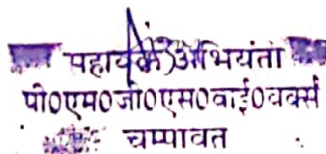 सहायक अभियंता
पी0एम0जी0एस0वाई0वर्क्स
चम्पावत